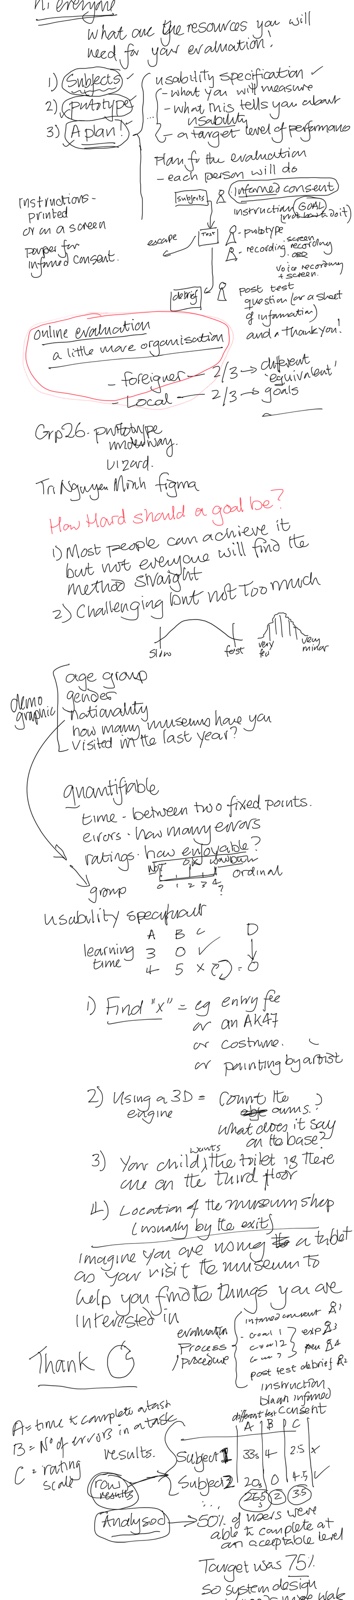 Hi everyone
What are the resources you will
need for your evaluation!
1) Subjects
2) Prototype
3) A plan!
usability specification
- what you will measure
- what this tells you about
usability
- a target level of performance
Plan for the evaluation
- each person will do
Instructions-
printed
or on a screen
paper for
informed consent.
Subjects
Informed consent
instruction GOAL
(not how to do it)
escape
Test
- prototype
- recording screen recording
voice recording
+ screen.
debrief
post test
question (or a sheet
of information)
and a thank you!
online evaluation
a little more organisation
- foreigner - 2/3 → different
'equivalent'
- Local - 2/3 → goals
Grp26. prototype
underway.
wizard.
Tri Nguyen Minh figma
How Hard should a goal be?
1) Most people can achieve it
but not everyone will find the
method straight
2) Challenging but not too much
slow
fast
very
few
very
minor
demo
graphic
age group
gender
nationality
how many museums have you
visited in the last year?
quantifiable
time - between two fixed points.
errors - how many errors
ratings - how enjoyable?
Not OK
0 1 2 3 4
?
ordinal
group
usability specificat
A B C D
learning 3 0 ✓
time 4 5 x = 0
1) Find "x" = eg entry fee
or an AK47
or costume.
or painting by artist
2) Using a 3D = Count the
engine arms?
what does it say
on the base?
3) Your child wants the toilet is there
one on the third floor
4) Location of the museum shop
(usually by the exit)
Imagine you are using a tablet
as your visit the museum to
help you find the things you are
interested in
evaluation
process
/procedure
informed consent R1
- Goal 1
- Goal 2
- Goal 3
post test debrief R2
instruction
blank informed
consent
Thank
A = time to complete a task
B = No of errors in a task
C = rating
scale
results.
A B C
Subject 1 33s 4 2.5 x
Subject 2 20s 0 4.5 ✓
26.5 2 3.5
raw
results
Analysed → 50% of users were
able to complete at
an acceptable level
Target was 75%
so system design